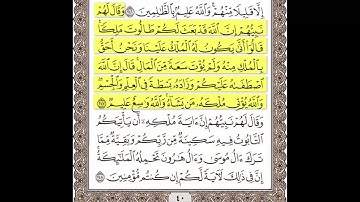 إِلَّا قَلِيلًا مِّنْهُمْ وَٱللَّهُ عَلِيمٌۢ بِٱلظَّٰلِمِينَ ٢٤٦ وَقَالَ لَهُمْ
نَبِيُّهُمْ إِنَّ ٱللَّهَ قَدْ بَعَثَ لَكُمْ طَالُوتَ مَلِكًا
قَالُوٓا۟ أَنَّىٰ يَكُونُ لَهُ ٱلْمُلْكُ عَلَيْنَا وَنَحْنُ أَحَقُّ
بِٱلْمُلْكِ مِنْهُ وَلَمْ يُؤْتَ سَعَةً مِّنَ ٱلْمَالِ قَالَ إِنَّ ٱللَّهَ
ٱصْطَفَىٰهُ عَلَيْكُمْ وَزَادَهُۥ بَسْطَةً فِى ٱلْعِلْمِ وَٱلْجِسْمِ
وَٱللَّهُ يُؤْتِى مُلْكَهُۥ مَن يَشَآءُ وَٱللَّهُ وَٰسِعٌ عَلِيمٌ ٢٤٧
وَقَالَ لَهُمْ نَبِيُّهُمْ إِنَّ ءَايَةَ مُلْكِهِۦٓ أَن يَأْتِيَكُمُ
ٱلتَّابُوتُ فِيهِ سَكِينَةٌ مِّن رَّبِّكُمْ وَبَقِيَّةٌ مِّمَّا
تَرَكَ ءَالُ مُوسَىٰ وَءَالُ هَٰرُونَ تَحْمِلُهُ ٱلْمَلَٰٓئِكَةُ
إِنَّ فِى ذَٰلِكَ لَءَايَةً لَّكُمْ إِن كُنتُم مُّؤْمِنِينَ ٢٤٨
٤٠